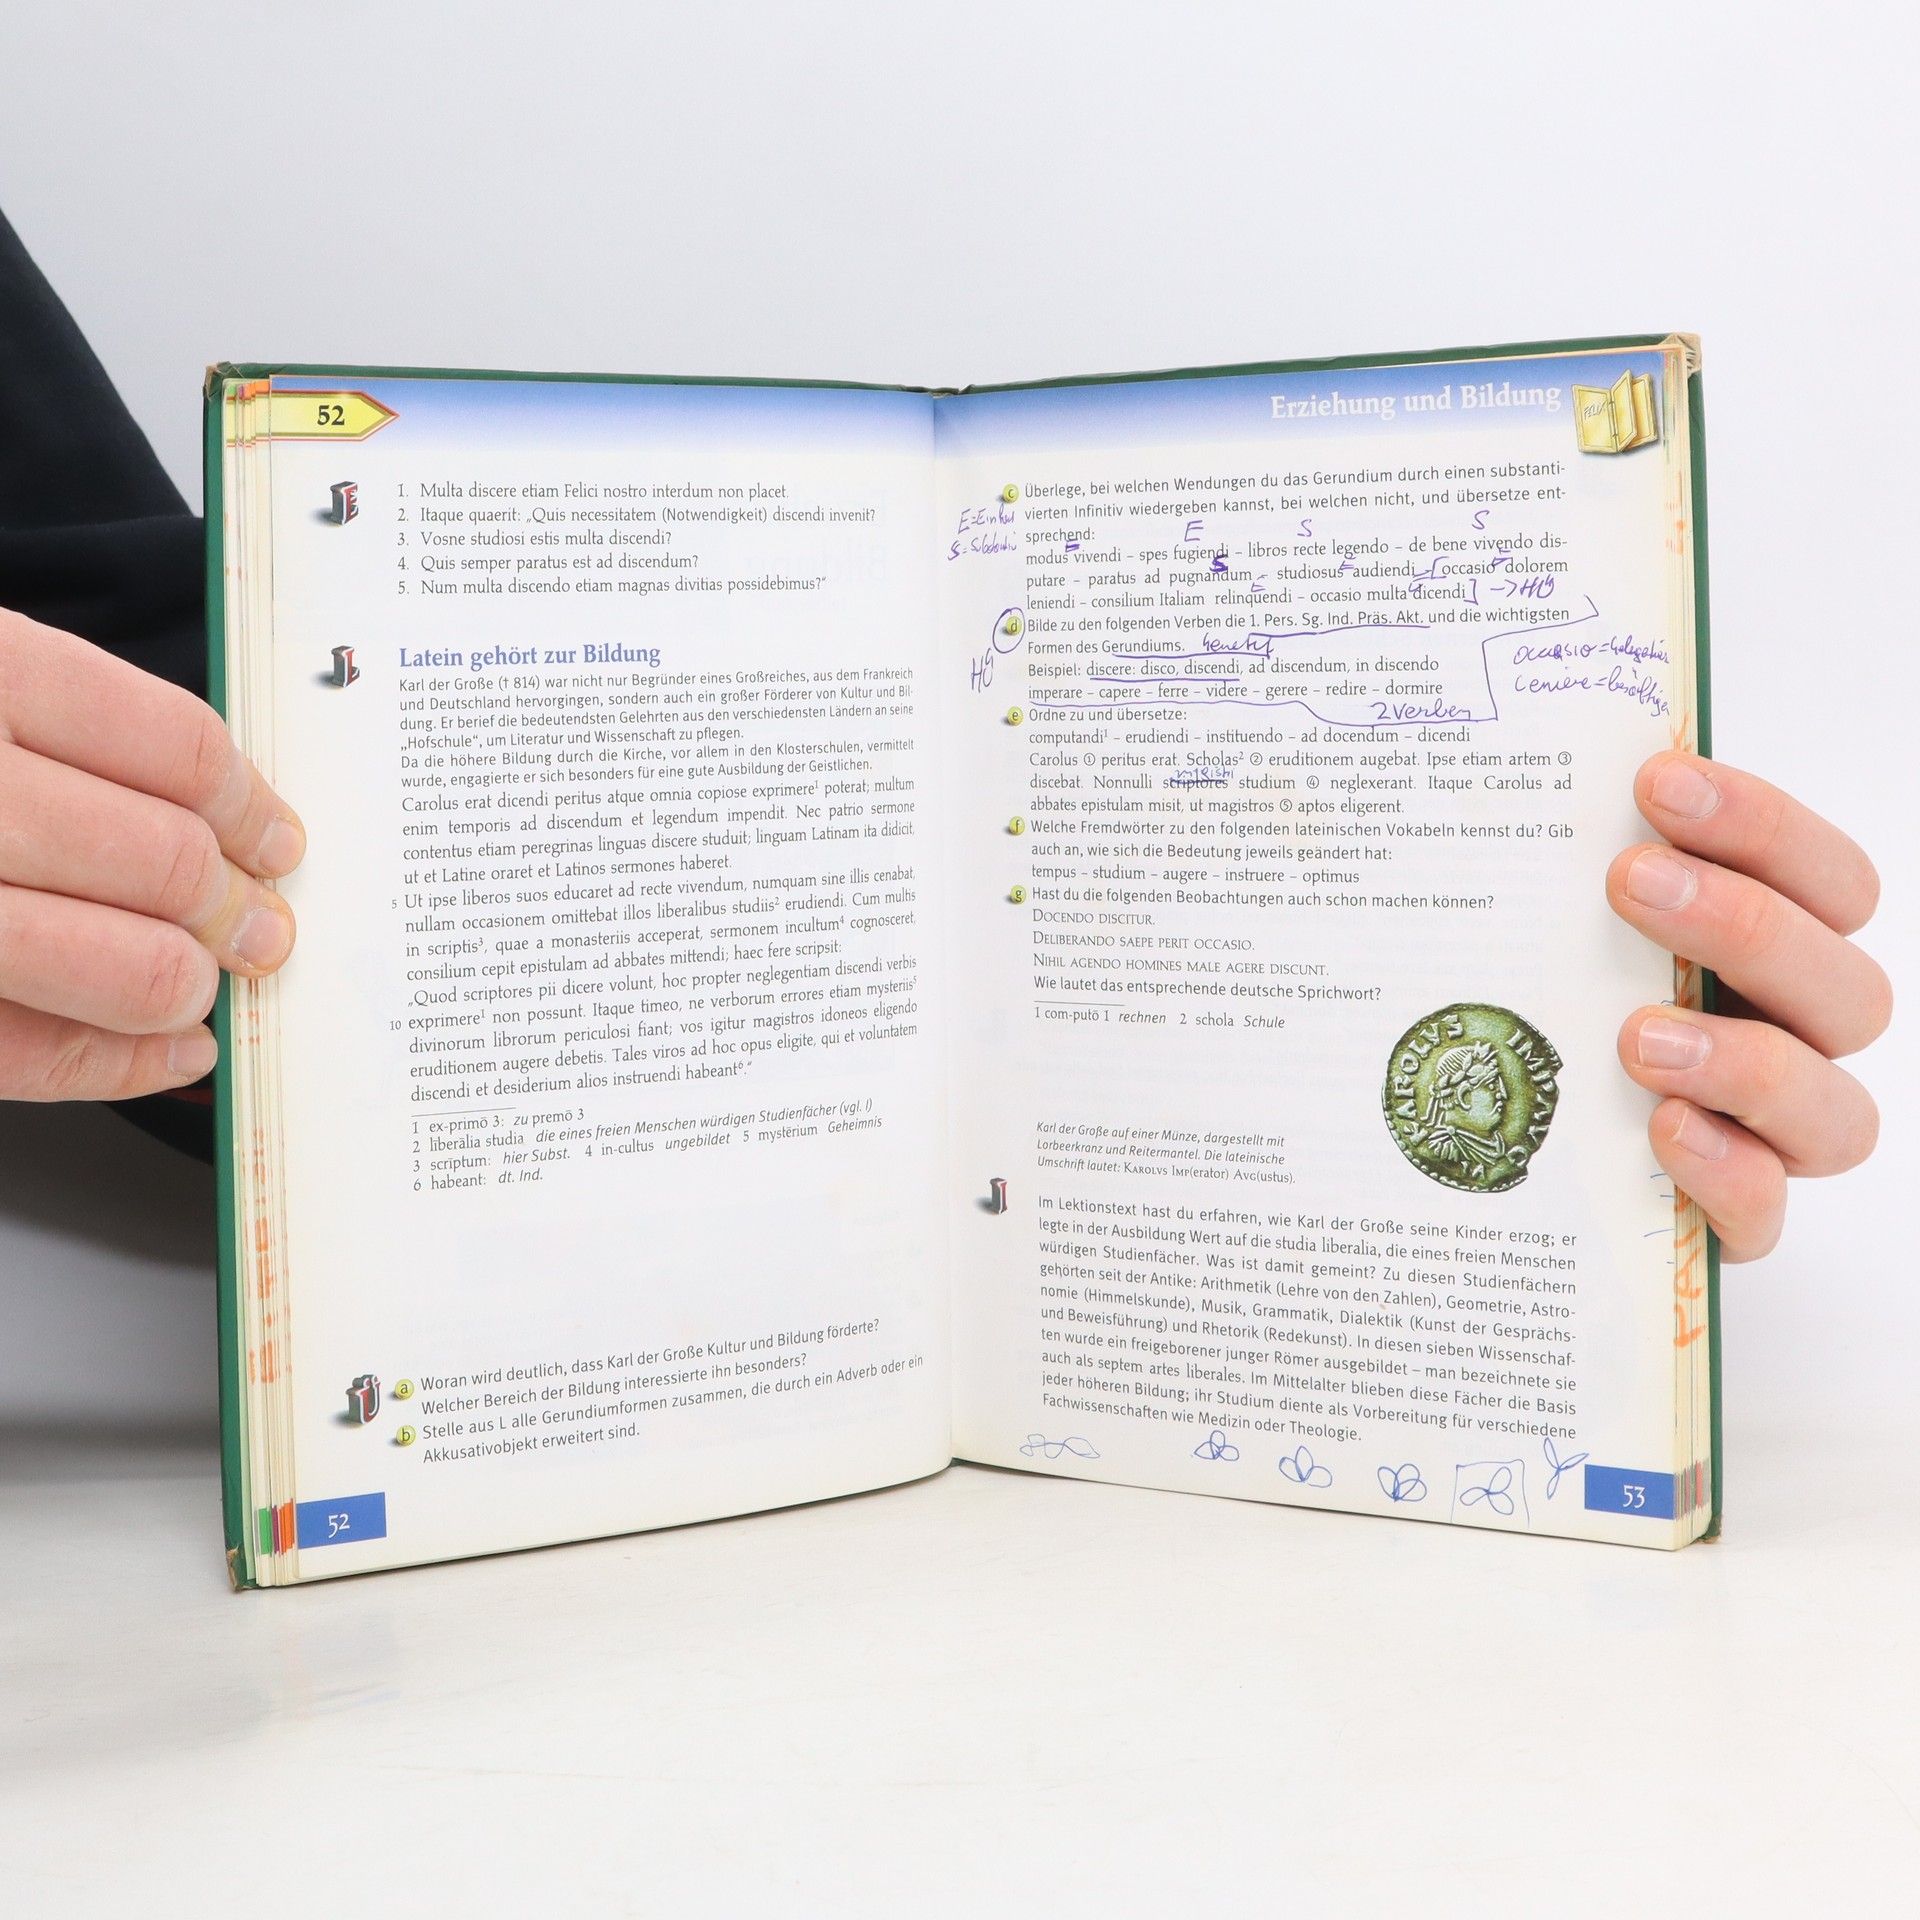 52
1. Multa discere etiam Felici nostro interdum non placet.
2. Itaque quaerit: „Quis necessitatem (Notwendigkeit) discendi invenit?
3. Vosne studiosi estis multa discendi?
4. Quis semper paratus est ad discendum?
5. Num multa discendo etiam magnas divitias possidebimus?“
Latein gehört zur Bildung
Karl der Große († 814) war nicht nur Begründer eines Großreiches, aus dem Frankreich
und Deutschland hervorgingen, sondern auch ein großer Förderer von Kultur und Bil-
dung. Er berief die bedeutendsten Gelehrten aus den verschiedensten Ländern an seine
„Hofschule“, um Literatur und Wissenschaft zu pflegen.
Da die höhere Bildung durch die Kirche, vor allem in den Klosterschulen, vermittelt
wurde, engagierte er sich besonders für eine gute Ausbildung der Geistlichen.
Carolus erat dicendi peritus atque omnia copiose exprimere¹ poterat; multum
enim temporis ad discendum et legendum impendit. Nec patrio sermone
contentus etiam peregrinas linguas discere studuit; linguam Latinam ita didicit,
ut et Latine oraret et Latinos sermones haberet.
5 Ut ipse liberos suos educaret ad recte vivendum, numquam sine illis cenabat,
nullam occasionem omittebat illos liberalibus studiis² erudiendi. Cum multis
in scriptis³, quae a monasteriis acceperat, sermonem incultum⁴ cognosceret,
consilium cepit epistulam ad abbates mittendi; haec fere scripsit:
„Quod scriptores pii dicere volunt, hoc propter neglegentiam discendi verbis
10 exprimere¹ non possunt. Itaque timeo, ne verborum errores etiam mysteriis⁵
divinorum librorum periculosi fiant; vos igitur magistros idoneos eligendo
eruditionem augere debetis. Tales viros ad hoc opus eligite, qui et voluntatem
discendi et desiderium alios instruendi habeant⁶.“
1 ex-primō 3: zu premō 3
2 liberālia studia die eines freien Menschen würdigen Studienfächer (vgl. I)
3 scrīptum: hier Subst. 4 in-cultus ungebildet 5 mystērium Geheimnis
6 habeant: dt. Ind.
a Woran wird deutlich, dass Karl der Große Kultur und Bildung förderte?
Welcher Bereich der Bildung interessierte ihn besonders?
b Stelle aus L alle Gerundiumformen zusammen, die durch ein Adverb oder ein
Akkusativobjekt erweitert sind.
52
Erziehung und Bildung
FELIX
c Überlege, bei welchen Wendungen du das Gerundium durch einen substanti-
vierten Infinitiv wiedergeben kannst, bei welchen nicht, und übersetze ent-
sprechend:
E S S
modus vivendi – spes fugiendi – libros recte legendo – de bene vivendo dis-
putare – paratus ad pugnandum – studiosus audiendi – [occasio dolorem
leniendi – consilium Italiam relinquendi – occasio multa dicendi] → HÜ
d Bilde zu den folgenden Verben die 1. Pers. Sg. Ind. Präs. Akt. und die wichtigsten
Formen des Gerundiums. Genetiv
HÜ
Beispiel: discere: disco, discendi, ad discendum, in discendo
imperare – capere – ferre – videre – gerere – redire – dormire
2 Verben
e Ordne zu und übersetze:
computandi¹ – erudiendi – instituendo – ad docendum – dicendi
Carolus ① peritus erat. Scholas² ② eruditionem augebat. Ipse etiam artem ③
discebat. Nonnulli scriptores studium ④ neglexerant. Itaque Carolus ad
abbates epistulam misit, ut magistros ⑤ aptos eligerent.
f Welche Fremdwörter zu den folgenden lateinischen Vokabeln kennst du? Gib
auch an, wie sich die Bedeutung jeweils geändert hat:
tempus – studium – augere – instruere – optimus
g Hast du die folgenden Beobachtungen auch schon machen können?
DOCENDO DISCITUR.
DELIBERANDO SAEPE PERIT OCCASIO.
NIHIL AGENDO HOMINES MALE AGERE DISCUNT.
Wie lautet das entsprechende deutsche Sprichwort?
1 com-putō 1 rechnen 2 schola Schule
CAROLVS IMP AVG
Karl der Große auf einer Münze, dargestellt mit
Lorbeerkranz und Reitermantel. Die lateinische
Umschrift lautet: KAROLVS IMP(erator) AVG(ustus).
I
Im Lektionstext hast du erfahren, wie Karl der Große seine Kinder erzog; er
legte in der Ausbildung Wert auf die studia liberalia, die eines freien Menschen
würdigen Studienfächer. Was ist damit gemeint? Zu diesen Studienfächern
gehörten seit der Antike: Arithmetik (Lehre von den Zahlen), Geometrie, Astro-
nomie (Himmelskunde), Musik, Grammatik, Dialektik (Kunst der Gesprächs-
und Beweisführung) und Rhetorik (Redekunst). In diesen sieben Wissenschaf-
ten wurde ein freigeborener junger Römer ausgebildet – man bezeichnete sie
auch als septem artes liberales. Im Mittelalter blieben diese Fächer die Basis
jeder höheren Bildung; ihr Studium diente als Vorbereitung für verschiedene
Fachwissenschaften wie Medizin oder Theologie.
53